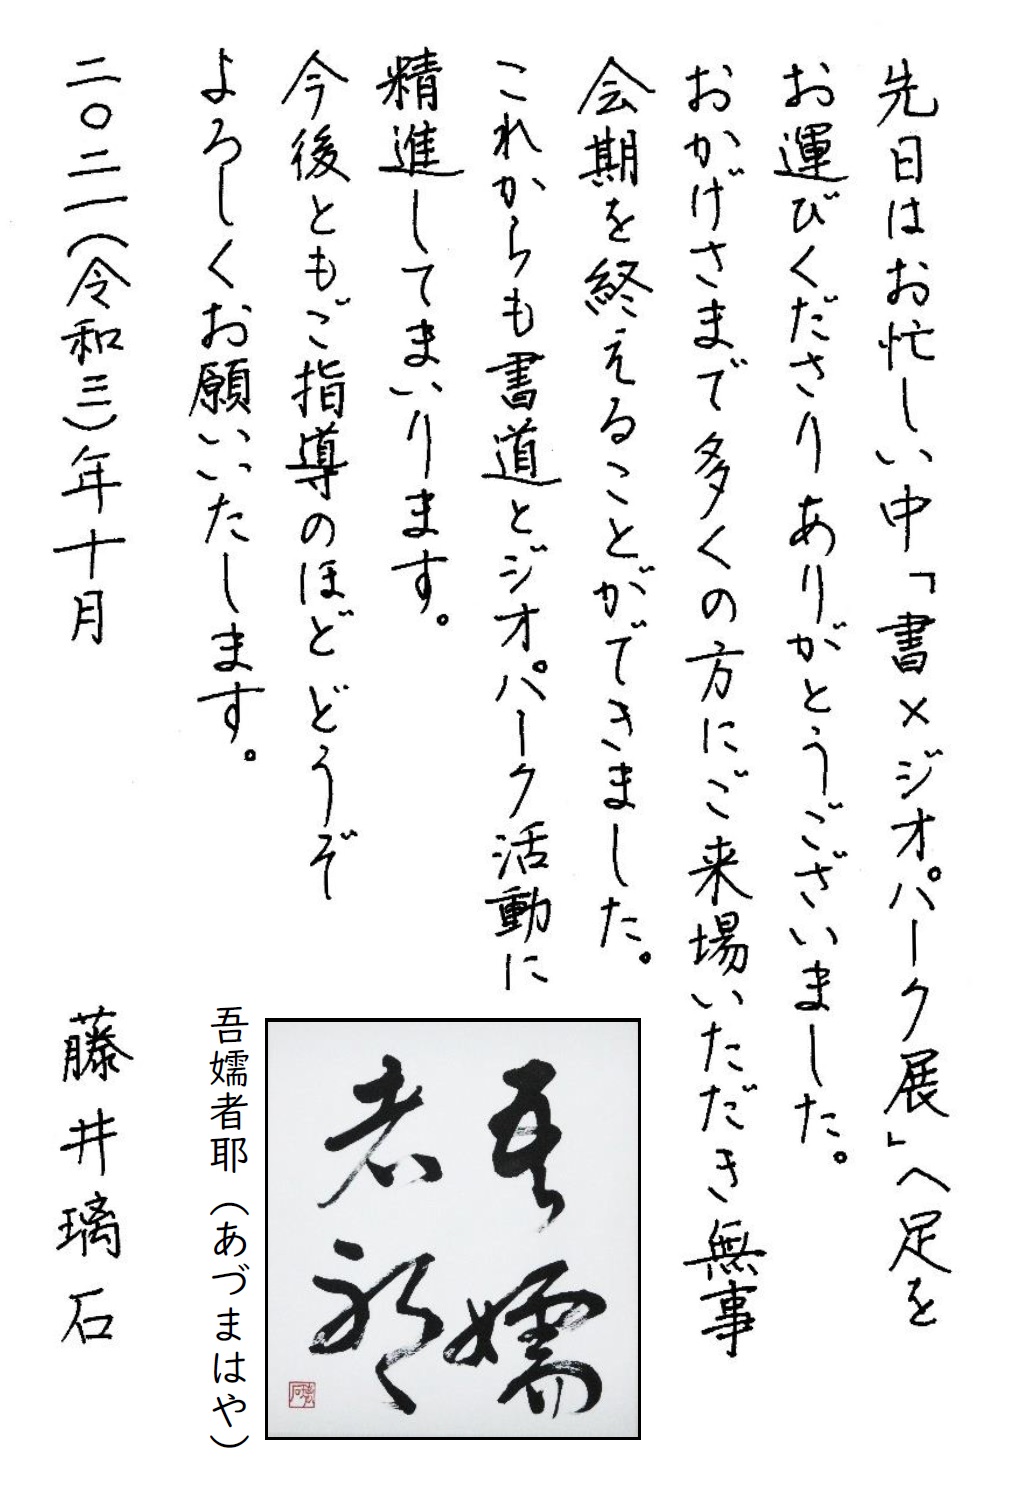 先日はお忙しい中「書×ジオパーク展」へ足を
お運びくださりありがとうございました。
おかげさまで多くの方にご来場いただき無事
会期を終えることができました。
これからも書道とジオパーク活動に
精進してまいります。
今後ともご指導のほどどうぞ
よろしくお願いいたします。
二〇二一(令和三)年十月
藤井璃石
吾嬬
者耶
吾嬬者耶(あづまはや)